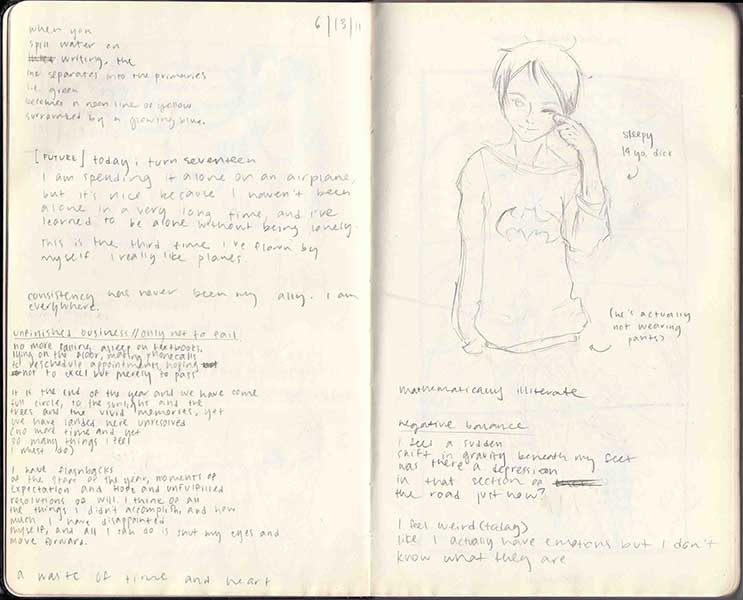 6/13/11
when you
spill water on
writing, the
ink separates into the primaries
i.e. green
becomes a neon line of yellow
surrounded by a glowing blue.
[FUTURE] today i turn seventeen
I am spending it alone on an airplane,
but it's nice because I haven't been
alone in a very long time, and I've
learned to be alone without being lonely.
This is the third time I've flown by
myself. I really like planes.
consistency has never been my ally. I am
everywhere.
unfinished business//only not to fail
no more falling asleep on textbooks,
lying on the floor, making phonecalls
to reschedule appointments, hoping
not to excel but merely to pass
it is the end of the year and we have come
full circle, to the sunlight and the
trees and the vivid memories, yet
we have landed here unresolved
(no more time and yet
so many things I feel
I must do)
I have flashbacks
of the start of the year, moments of
expectation and hope and unfulfilled
resolutions of will. I think of all
the things I didn't accomplish, and how
much I have disappointed
myself, and all I can do is shut my eyes and
move forward.
a waste of time and heart
sleepy
14 yo. dick
(he's actually
not wearing
pants)
mathematically illiterate
negative balance
I feel a sudden
shift in gravity beneath my feet
was there a depression
in that section of
the road just now?
I feel weird (today)
like I actually have emotions but I don't
know what they are